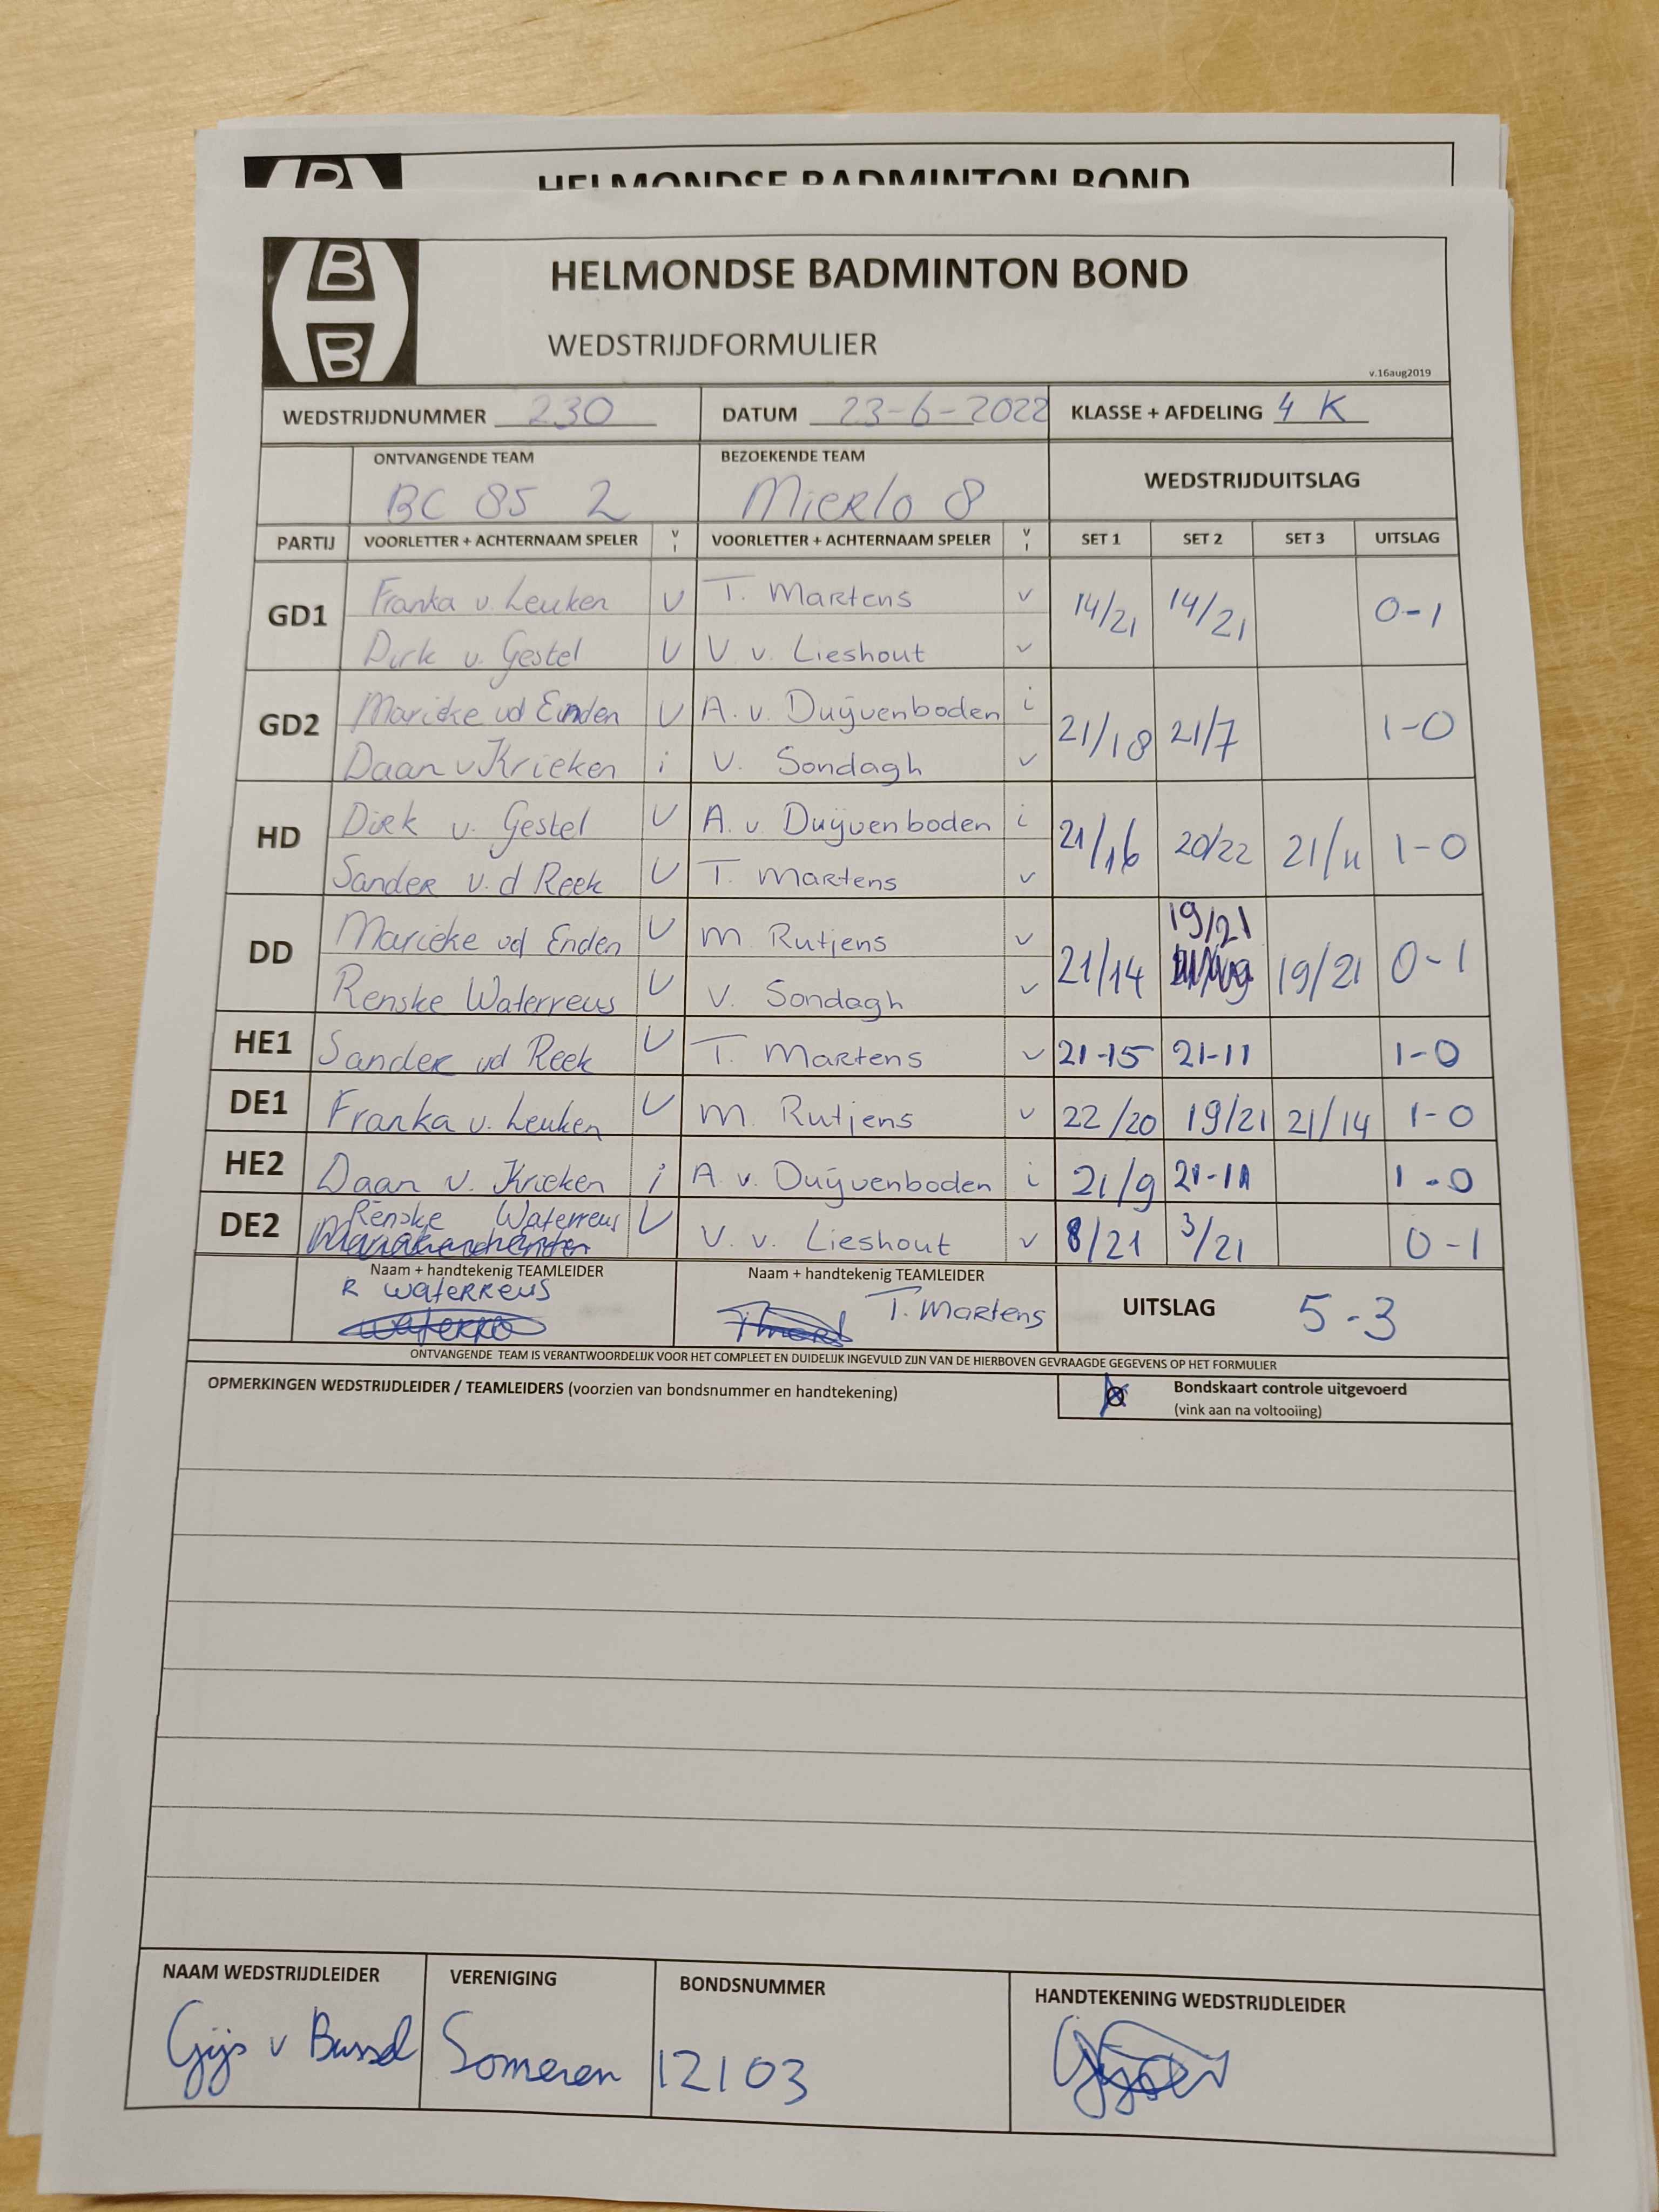 HELMONDSE BADMINTON BOND
B
B
HELMONDSE BADMINTON BOND
WEDSTRIJDFORMULIER
v.16aug2019
WEDSTRIJDNUMMER 230 DATUM 23-6-2022 KLASSE + AFDELING 4 K
ONTVANGENDE TEAM BEZOEKENDE TEAM WEDSTRIJDUITSLAG
BC 85 2 Mierlo 8
PARTIJ VOORLETTER + ACHTERNAAM SPELER V I VOORLETTER + ACHTERNAAM SPELER V I SET 1 SET 2 SET 3 UITSLAG
GD1 Franka v. Leuken V T. Martens v 14/21 14/21 0-1
Dirk v. Gestel V V v. Lieshout v
GD2 Marieke vd Einden V A. v. Duijvenboden i 21/18 21/7 1-0
Daan v Krieken i V. Sondagh v
HD Dirk v. Gestel V A. v Duijvenboden i 21/16 20/22 21/11 1-0
Sander v.d Reek V T. Martens v
DD Marieke vd Enden V M Rutjens v 21/14 19/21 19/21 0-1
Renske Waterreus V V. Sondagh v
HE1 Sander vd Reek V T. Martens v 21-15 21-11 1-0
DE1 Franka v. Leuken V M. Rutjens v 22/20 19/21 21/14 1-0
HE2 Daan v. Krieken i A v. Duijvenboden i 21/9 21-11 1-0
DE2 Renske Waterreus V V. v. Lieshout v 8/21 3/21 0-1
Naam + handtekenig TEAMLEIDER Naam + handtekenig TEAMLEIDER
R Waterreus T. Martens UITSLAG 5-3
ONTVANGENDE TEAM IS VERANTWOORDELIJK VOOR HET COMPLEET EN DUIDELIJK INGEVULD ZIJN VAN DE HIERBOVEN GEVRAAGDE GEGEVENS OP HET FORMULIER
OPMERKINGEN WEDSTRIJDLEIDER / TEAMLEIDERS (voorzien van bondsnummer en handtekening) Bondskaart controle uitgevoerd
(vink aan na voltooiing)
NAAM WEDSTRIJDLEIDER VERENIGING BONDSNUMMER HANDTEKENING WEDSTRIJDLEIDER
Gijs v Bussel Someren 12103